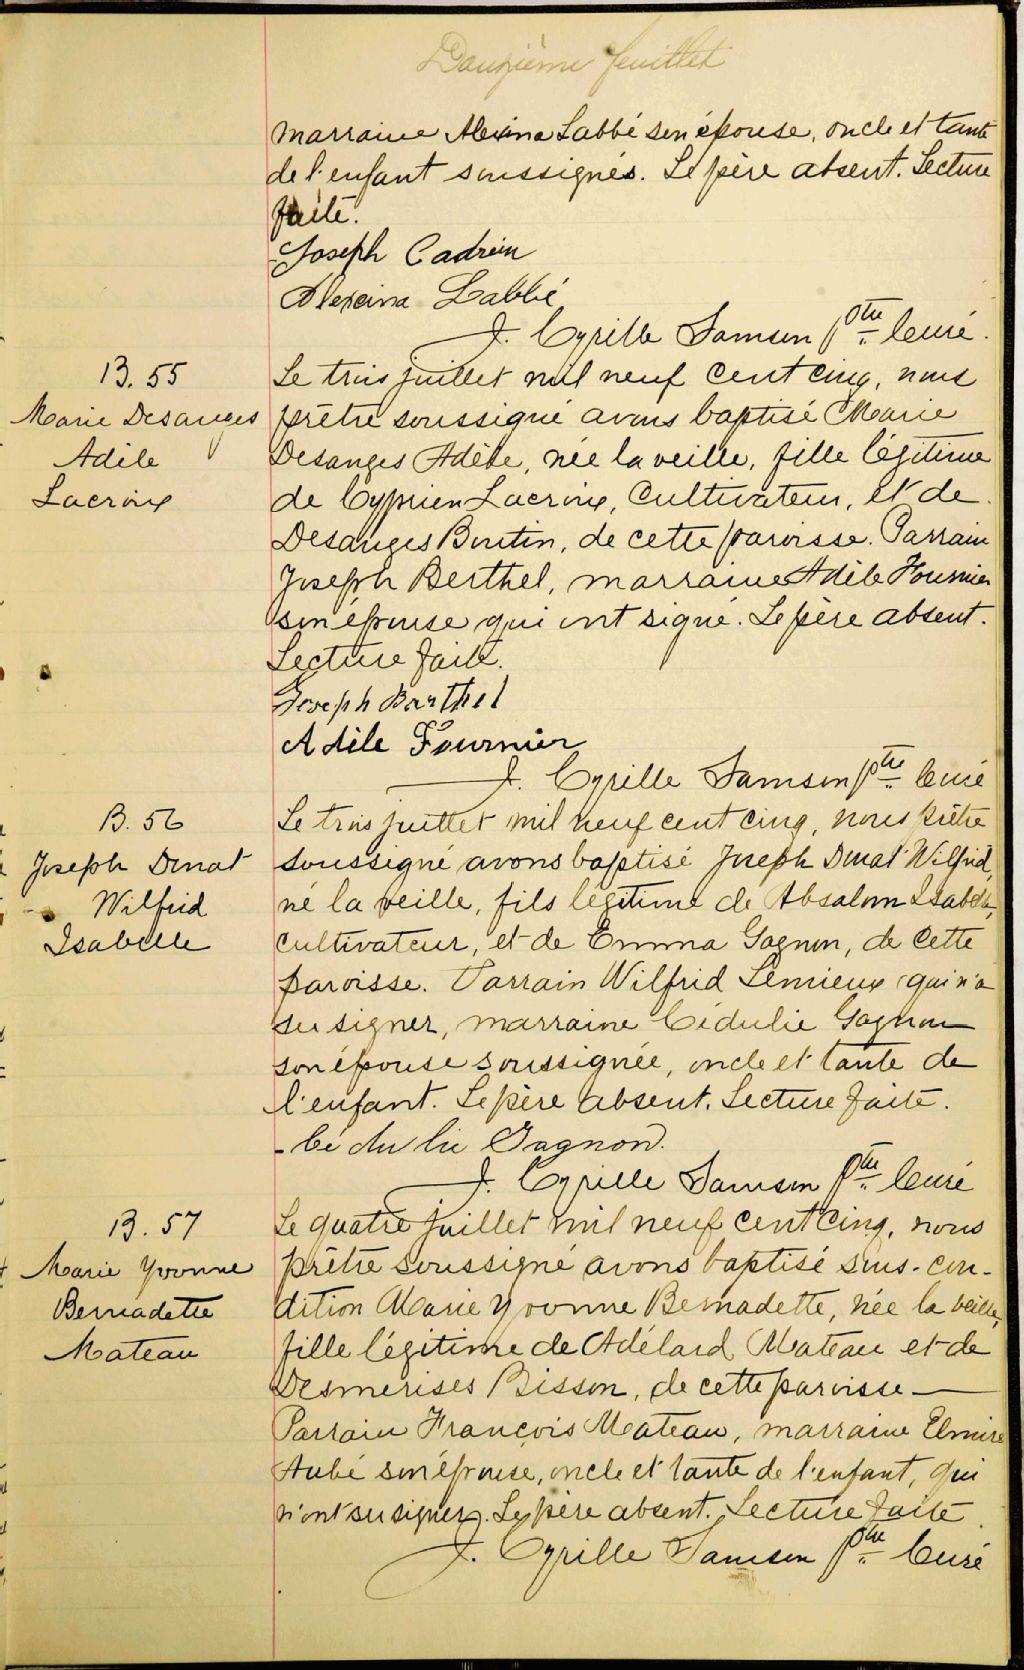 Douzième feuillet
marraine Alexina Labbé son épouse, oncle et tante
de l'enfant soussignés. Le père absent. Lecture
faite.
Joseph Cadrin
Alexina Labbé
J. Cyrille Samson Ptre Curé.
B. 55
Marie Desanges
Adèle
Lacroix
Le trois juillet mil neuf cent cinq, nous
prêtre soussigné avons baptisé Marie
Desanges Adèle, née la veille, fille légitime
de Cyprien Lacroix, cultivateur, et de
Desanges Boutin, de cette paroisse. Parrain
Joseph Berthel, marraine Adèle Fournier
son épouse qui ont signé. Le père absent.
Lecture faite.
Joseph Barthel
Adile Fournier
J. Cyrille Samson Ptre Curé
B. 56
Joseph Donat
Wilfrid
Isabelle
Le trois juillet mil neuf cent cinq, nous prêtre
soussigné avons baptisé Joseph Donat Wilfrid,
né la veille, fils légitime de Absalom Isabelle,
cultivateur, et de Emma Gagnon, de cette
paroisse. Parrain Wilfrid Lemieux qui n'a
su signer, marraine Cédulie Gagnon
son épouse soussignée, oncle et tante de
l'enfant. Le père absent. Lecture faite.
Cédulie Gagnon.
J. Cyrille Samson Ptre Curé
B. 57
Marie Yvonne
Bernadette
Mateau
Le quatre juillet mil neuf cent cinq, nous
prêtre soussigné avons baptisé sous-con-
dition Marie Yvonne Bernadette, née la veille,
fille légitime de Adélard Mateau et de
Desmerises Bisson, de cette paroisse —
Parrain François Mateau, marraine Elmire
Aubé son épouse, oncle et tante de l'enfant, qui
n'ont su signer. Le père absent. Lecture faite.
J. Cyrille Samson Ptre Curé